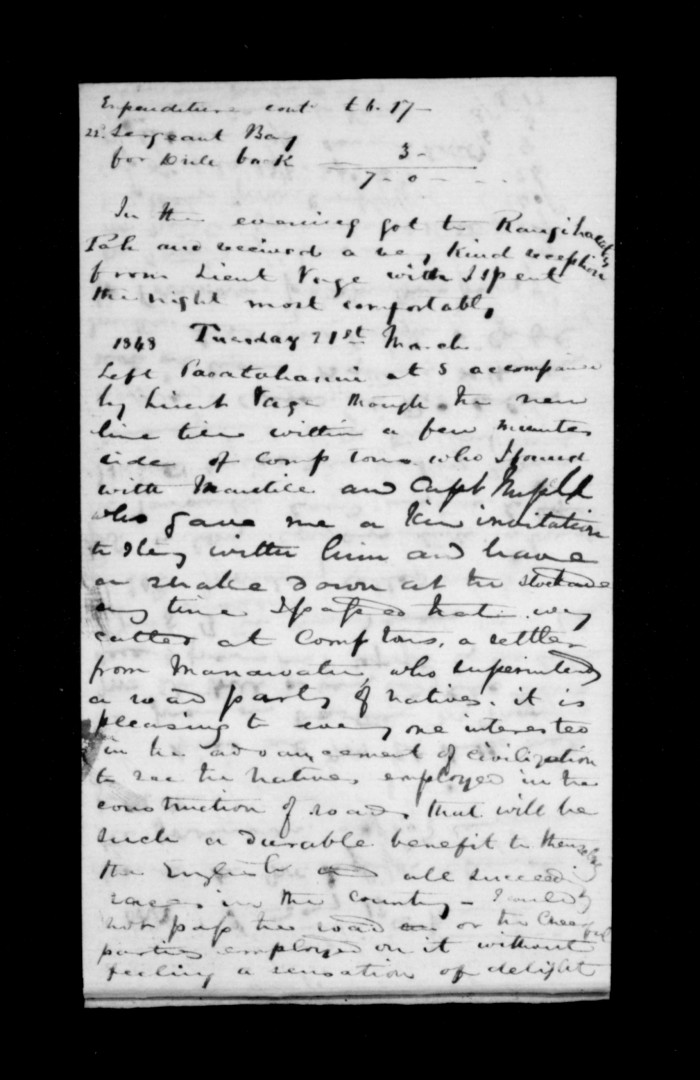 Expenditure cont £6.17-
22. Sergeant Bay
for Dule back 3-
7 - 0 - - .
In the evening got to Rangihaeata's
Pah and received a very kind reception
from Lieut Page with I spent
the night most comfortably
1848 Tuesday 21st March
Left Pauatahanui at 5 accompanied
by Lieut Page through the new
line tier within a few minutes
ride of Comp tons who I found
with and Capt
who gave me a kin invitation
to stay with him and have
a shake down at the stockade
any time I passed that way
called at Comptons, a settler
from Manawatu, who superintends
a road party of natives. it is
pleasing to every one interested
in the advancement of civilization
to see the natives employed in the
construction of roads that will be
such a durable benefit to themselves
the English and all succeeding
races in the country - I could
not pass the road or the cheerful
parties employed on it without
feeling a sensation of delight